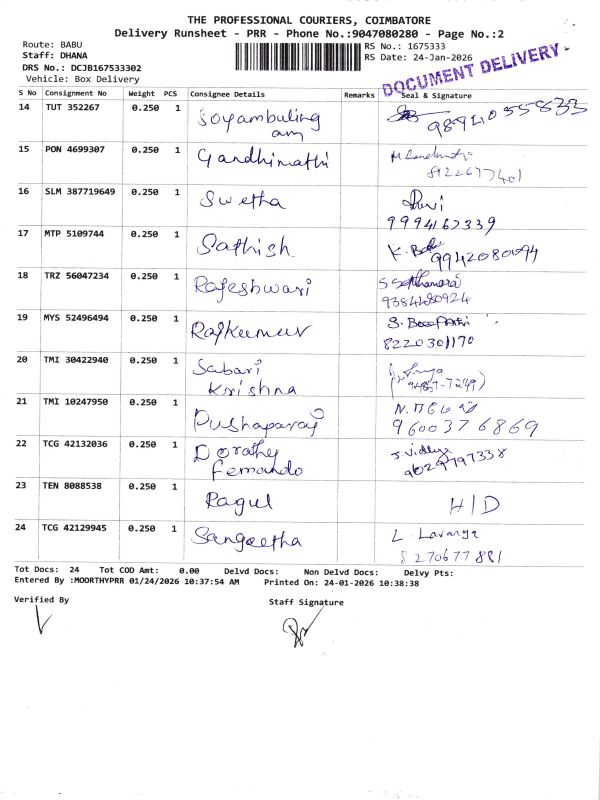 THE PROFESSIONAL COURIERS, COIMBATORE
Delivery Runsheet - PRR - Phone No.:9047080280 - Page No.:2
Route: BABU
Staff: DHANA
DRS No.: DCJB167533302
Vehicle: Box Delivery
RS No.: 1675333
RS Date: 24-Jan-2026
DOCUMENT DELIVERY
S No Consignment No Weight PCS Consignee Details Remarks Seal & Signature
14 TUT 352267 0.250 1 Soyambuling am
15 PON 4699307 0.250 1 Gandhimathi
8122677401
16 SLM 387719649 0.250 1 Swetha
9994167339
17 MTP 5109744 0.250 1 Sathish
18 TRZ 56047234 0.250 1 Rajeshwari
9384480924
19 MYS 52496494 0.250 1 Rajkumar
8220301170
20 TMI 30422940 0.250 1 Sabari
Krishna
21 TMI 10247950 0.250 1 Pushaparaj
9600376869
22 TCG 42132036 0.250 1 Dorathy
Fernando
J. Vidhya
23 TEN 8088538 0.250 1 Ragul H/D
24 TCG 42129945 0.250 1 Sangeetha L. Lavanya
8270677881
Tot Docs: 24 Tot COD Amt: 0.00 Delvd Docs: Non Delvd Docs: Delvy Pts:
Entered By :MOORTHYPRR 01/24/2026 10:37:54 AM Printed On: 24-01-2026 10:38:38
Verified By Staff Signature